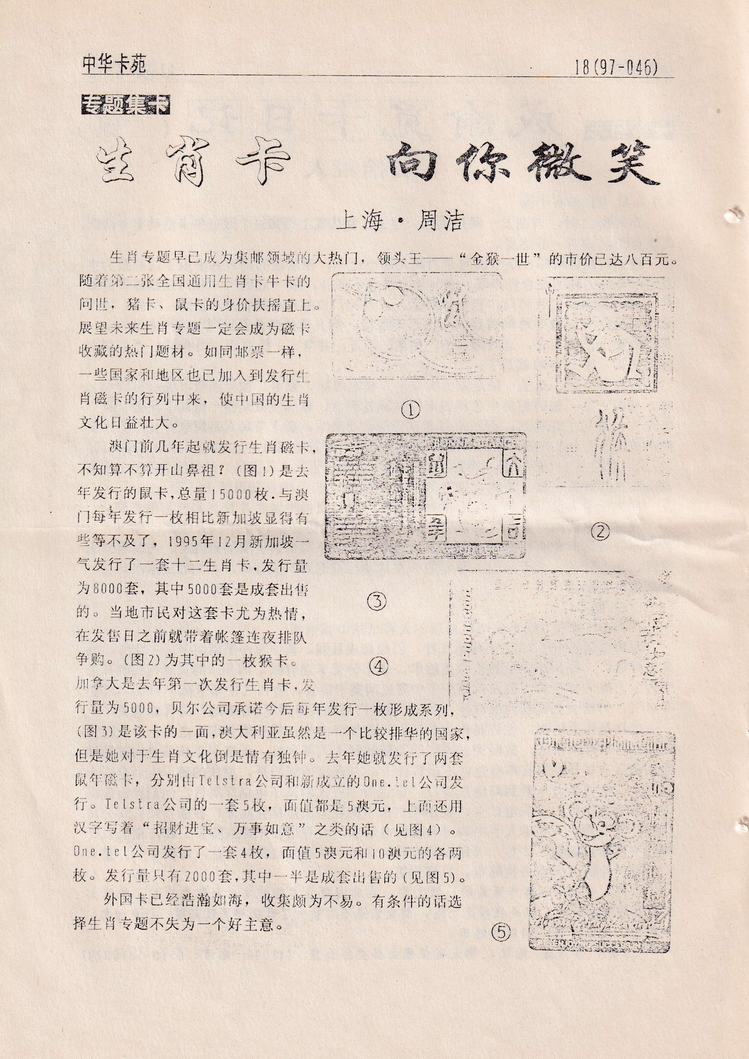 中华卡苑
18(97-046)
专题集卡
生肖卡 向你微笑
上海·周洁
生肖专题早已成为集邮领域的大热门，领头王——“金猴一世”的市价已达八百元。
随着第二张全国通用生肖卡牛卡的
问世，猪卡、鼠卡的身价扶摇直上。
展望未来生肖专题一定会成为磁卡
收藏的热门题材。如同邮票一样，
一些国家和地区也已加入到发行生
肖磁卡的行列中来，使中国的生肖
文化日益壮大。
澳门前几年起就发行生肖磁卡，
不知算不算开山鼻祖？(图1)是去
年发行的鼠卡，总量15000枚．与澳
门每年发行一枚相比新加坡显得有
些等不及了，1995年12月新加坡一
气发行了一套十二生肖卡，发行量
为8000套，其中5000套是成套出售
的。当地市民对这套卡尤为热情，
在发售日之前就带着帐篷连夜排队
争购。(图2)为其中的一枚猴卡。
加拿大是去年第一次发行生肖卡，发
行量为5000，贝尔公司承诺今后每年发行一枚形成系列，
(图3)是该卡的一面，澳大利亚虽然是一个比较排华的国家，
但是她对于生肖文化倒是情有独钟。去年她就发行了两套
鼠年磁卡，分别由Telstra公司和新成立的One.tel公司发
行。Telstra公司的一套5枚，面值都是5澳元，上面还用
汉字写着“招财进宝、万事如意”之类的话（见图4）。
One.tel公司发行了一套4枚，面值5澳元和10澳元的各两
枚。发行量只有2000套，其中一半是成套出售的(见图5)。
外国卡已经浩瀚如海，收集颇为不易。有条件的话选
择生肖专题不失为一个好主意。
①
②
③
④
⑤